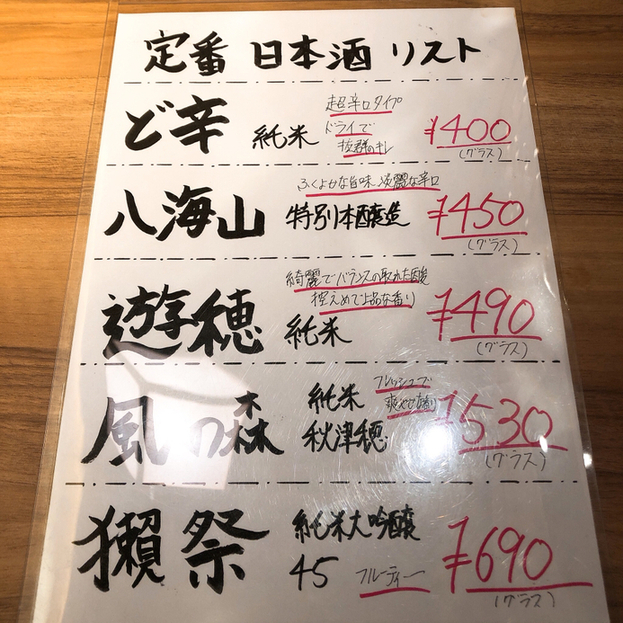 定番 日本酒 リスト
ど辛 純米 超辛口タイプ
ドライで
抜群のキレ
¥400
(グラス)
ふくよかな旨味 淡麗な辛口
八海山 特別本醸造 ¥450
(グラス)
綺麗でバランスの取れた
控えめで上品な香り
遊穂 純米 ¥490
(グラス)
風の森 純米 フレッシュで
秋津穂
¥530
(グラス)
獺祭 純米大吟醸
45 フルーティー
¥690
(グラス)